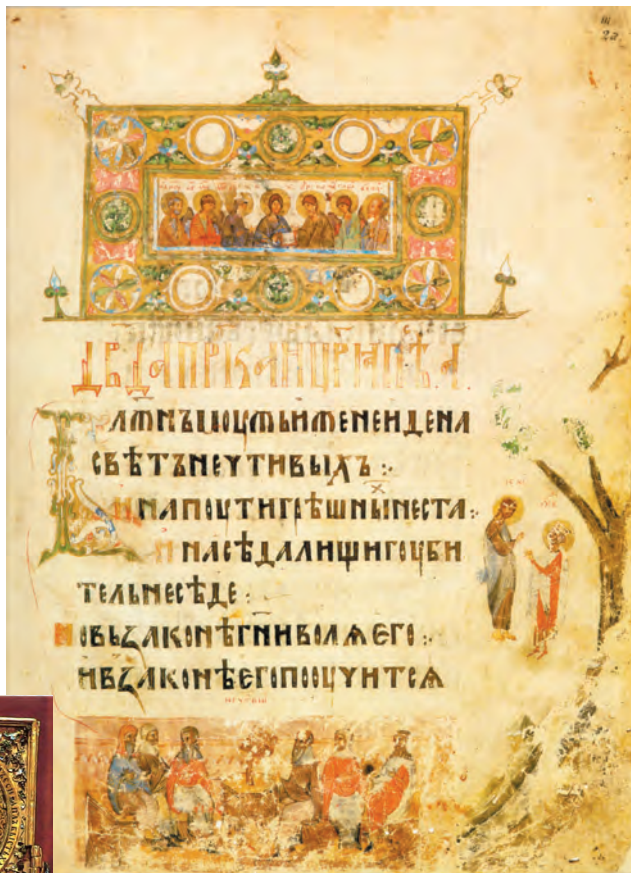 ДВДАПРКАИЦРѦПѢ.А.
БЛАЖНЪМОУЖЬИЖЕНЕИДЕНА
СВѢТЪНЕЧТИВЫХЪ:·
ИНАПОУТИГРѢШНЫНЕСТА:·
ИНАСѢДАЛИЩИГОУБИ
ТЕЛЬНЕСѢДЕ:·
НОВЬЗАКОНѢГНИВОЛѦЕГО:·
ИВЗАКОНѢЕГОПООУЧИТСѦ